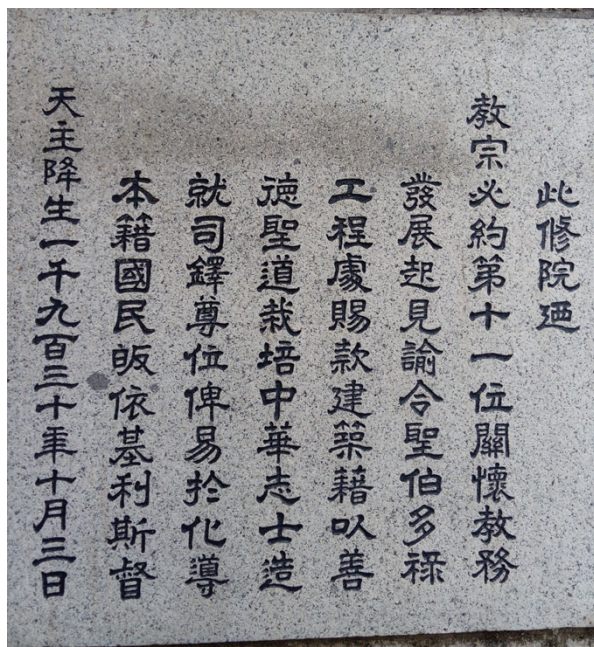 此修院廼
教宗必約第十一位關懷教務
發展起見諭令聖伯多禄
工程處賜款建築藉以善
徳聖道栽培中華志士造
就司鐸尊位俾易扵化導
本籍國民皈依基利斯督
天主降生一千九百三十年十月三日